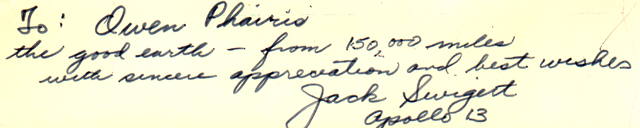 To: Owen Phairis
the good earth — from 150,000 miles
with sincere apprecation and best wishes
Jack Swigert
Apollo 13